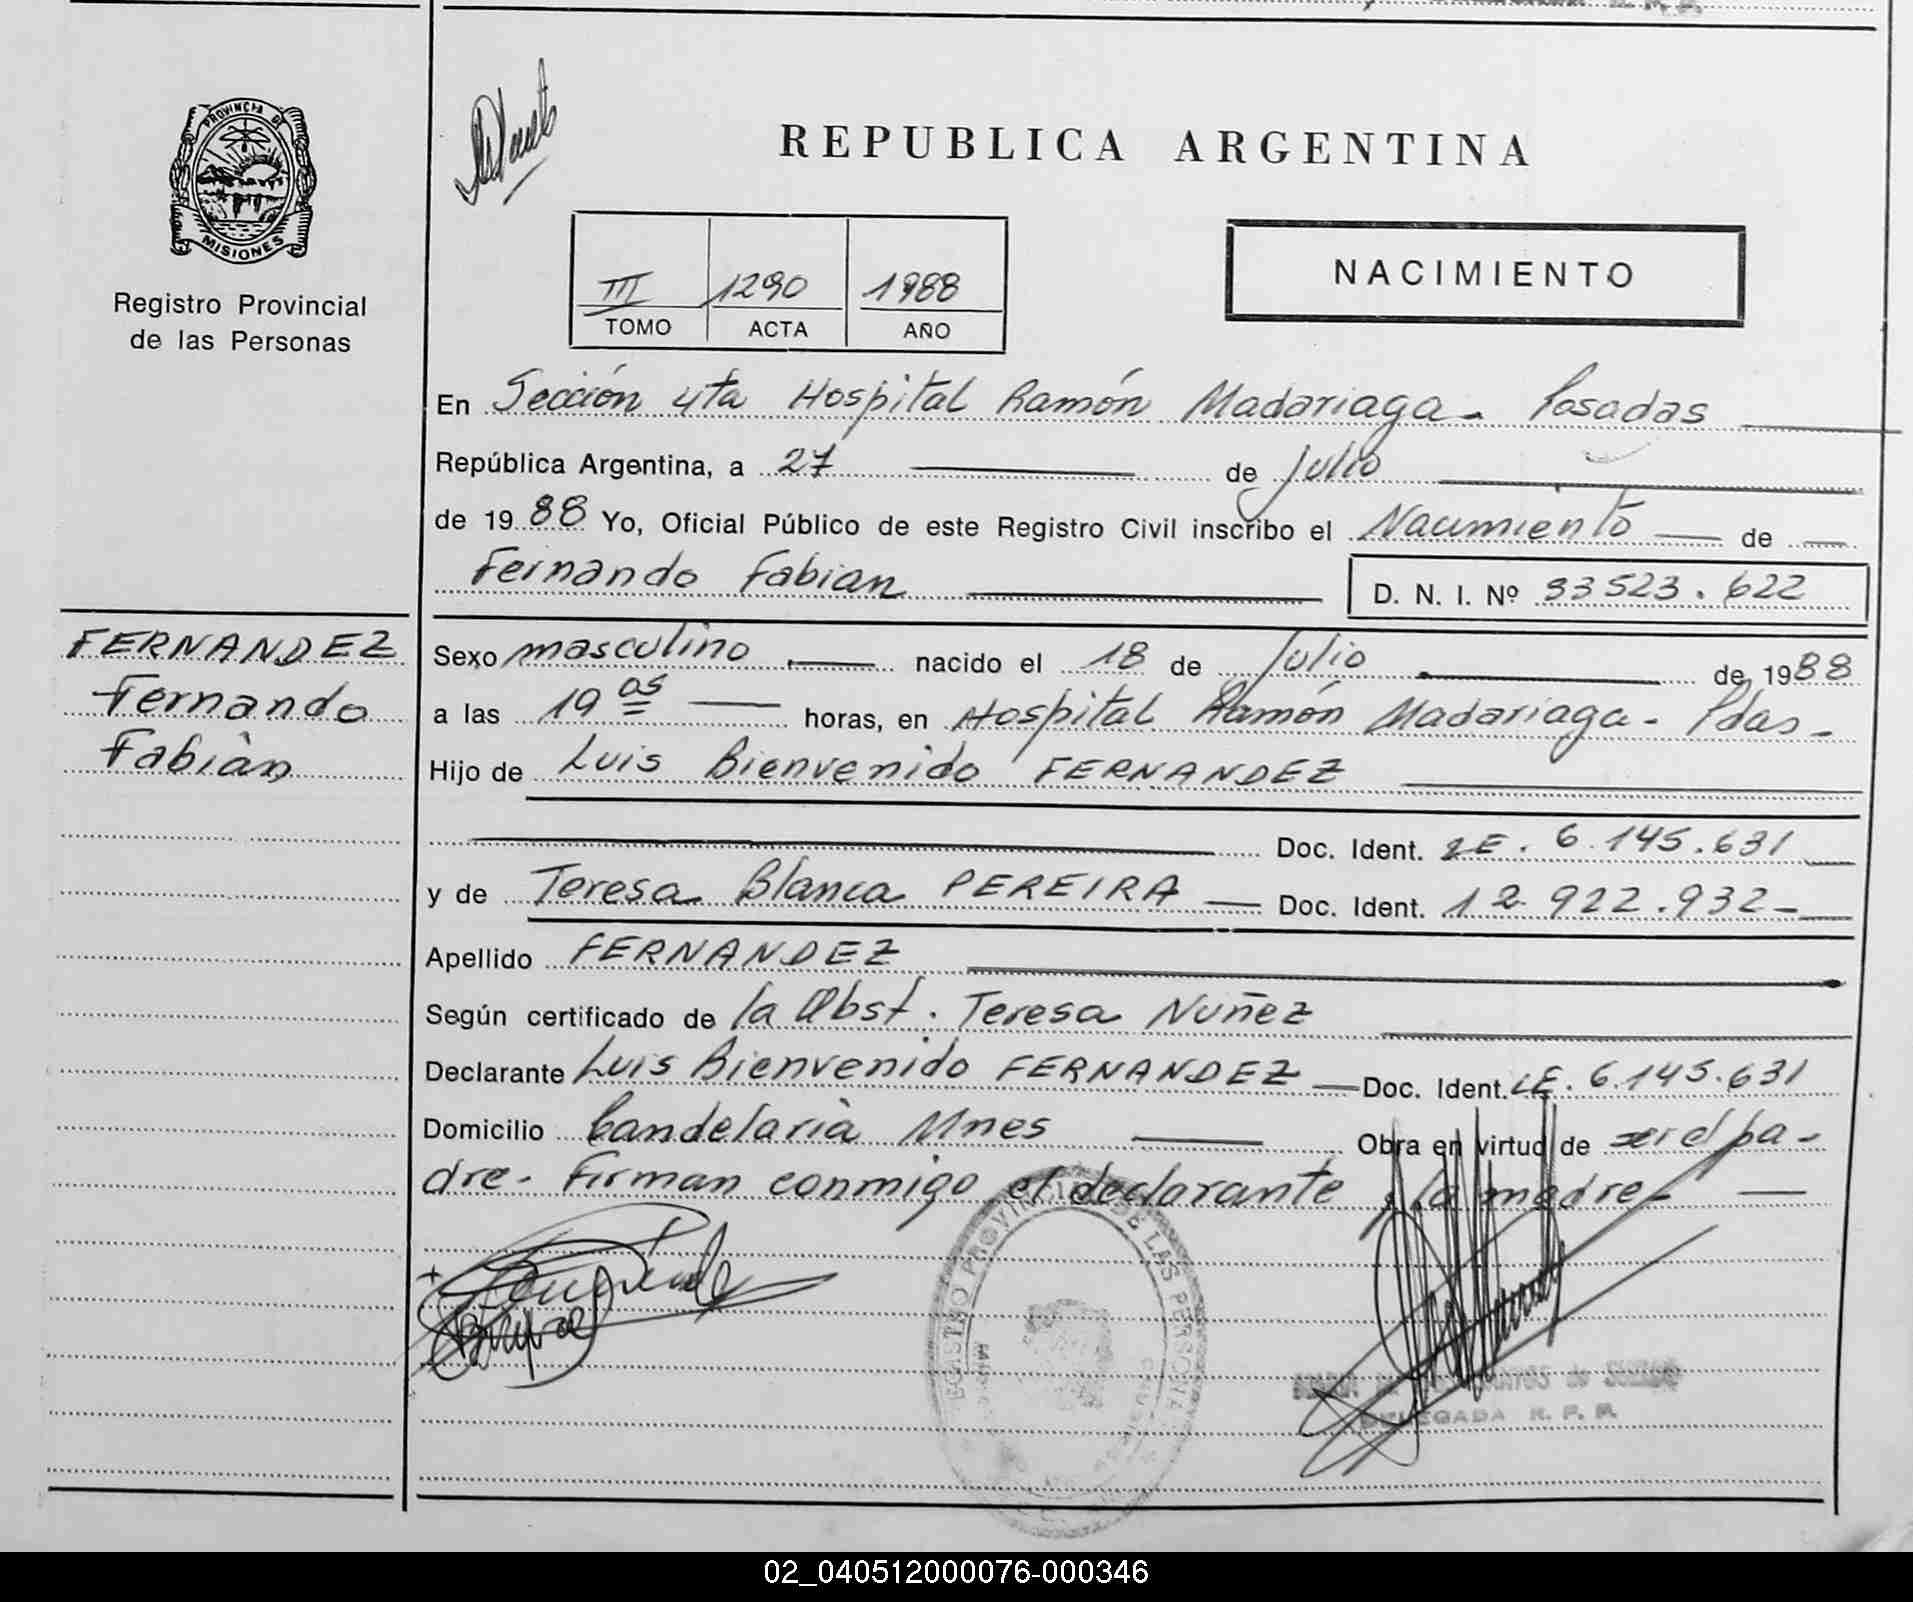 PROVINCIA DE
MISIONES
Registro Provincial
de las Personas
REPUBLICA ARGENTINA
III 1290 1988
TOMO ACTA AÑO
NACIMIENTO
En Sección 4ta Hospital Ramón Madariaga - Posadas
República Argentina, a 27 de Julio
de 1988 Yo, Oficial Público de este Registro Civil inscribo el Nacimiento de
Fernando Fabian D. N. I. Nº 33523.622
FERNANDEZ
Fernando
Fabiàn
Sexo masculino nacido el 18 de Julio de 1988
a las 19 05 horas, en Hospital Ramón Madariaga - Pdas -
Hijo de Luis Bienvenido FERNANDEZ
Doc. Ident. LE. 6.145.631
y de Teresa Blanca PEREIRA Doc. Ident. 12.922.932-
Apellido FERNANDEZ
Según certificado de la Obst. Teresa Nuñez
Declarante Luis Bienvenido FERNANDEZ Doc. Ident. LE. 6.145.631
Domicilio Candelarià Mnes Obra en virtud de ser el pa-
dre - Firman conmigo el declarante y la madre -
REGISTRO PROVINCIAL DE LAS PERSONAS
DELEGADA R. P. P.
02_040512000076-000346